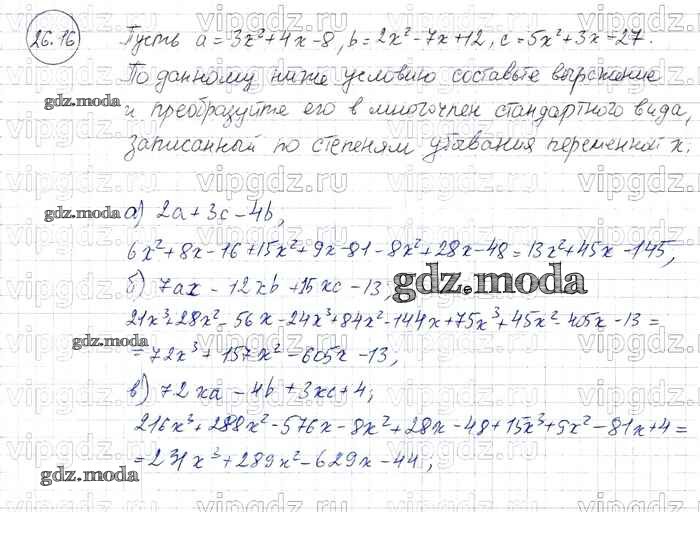 26.16
Пусть a=3x²+4x-8, b=2x²-7x+12, c=5x²+3x-27.
По данному ниже условию составьте выражение
gdz.moda
и преобразуйте его в многочлен стандартного вида,
записанный по степеням убывания переменной x.
gdz.moda
а) 2a+3c-4b,
6x²+8x-16+15x²+9x-81-8x²+28x-48=13x²+45x-145,
б) 7ax-12xb+15xc-13;
gdz.moda
21x³+28x²-56x-24x³+84x²-144x+75x³+45x²-405x-13=
gdz.moda
=72x³+157x²-605x-13,
в) 72xa-4b+3xc+4;
216x³+288x²-576x-8x²+28x-48+15x³+9x²-81x+4=
gdz.moda
=231x³+289x²-629x-44;
gdz.moda
vipgdz.ru